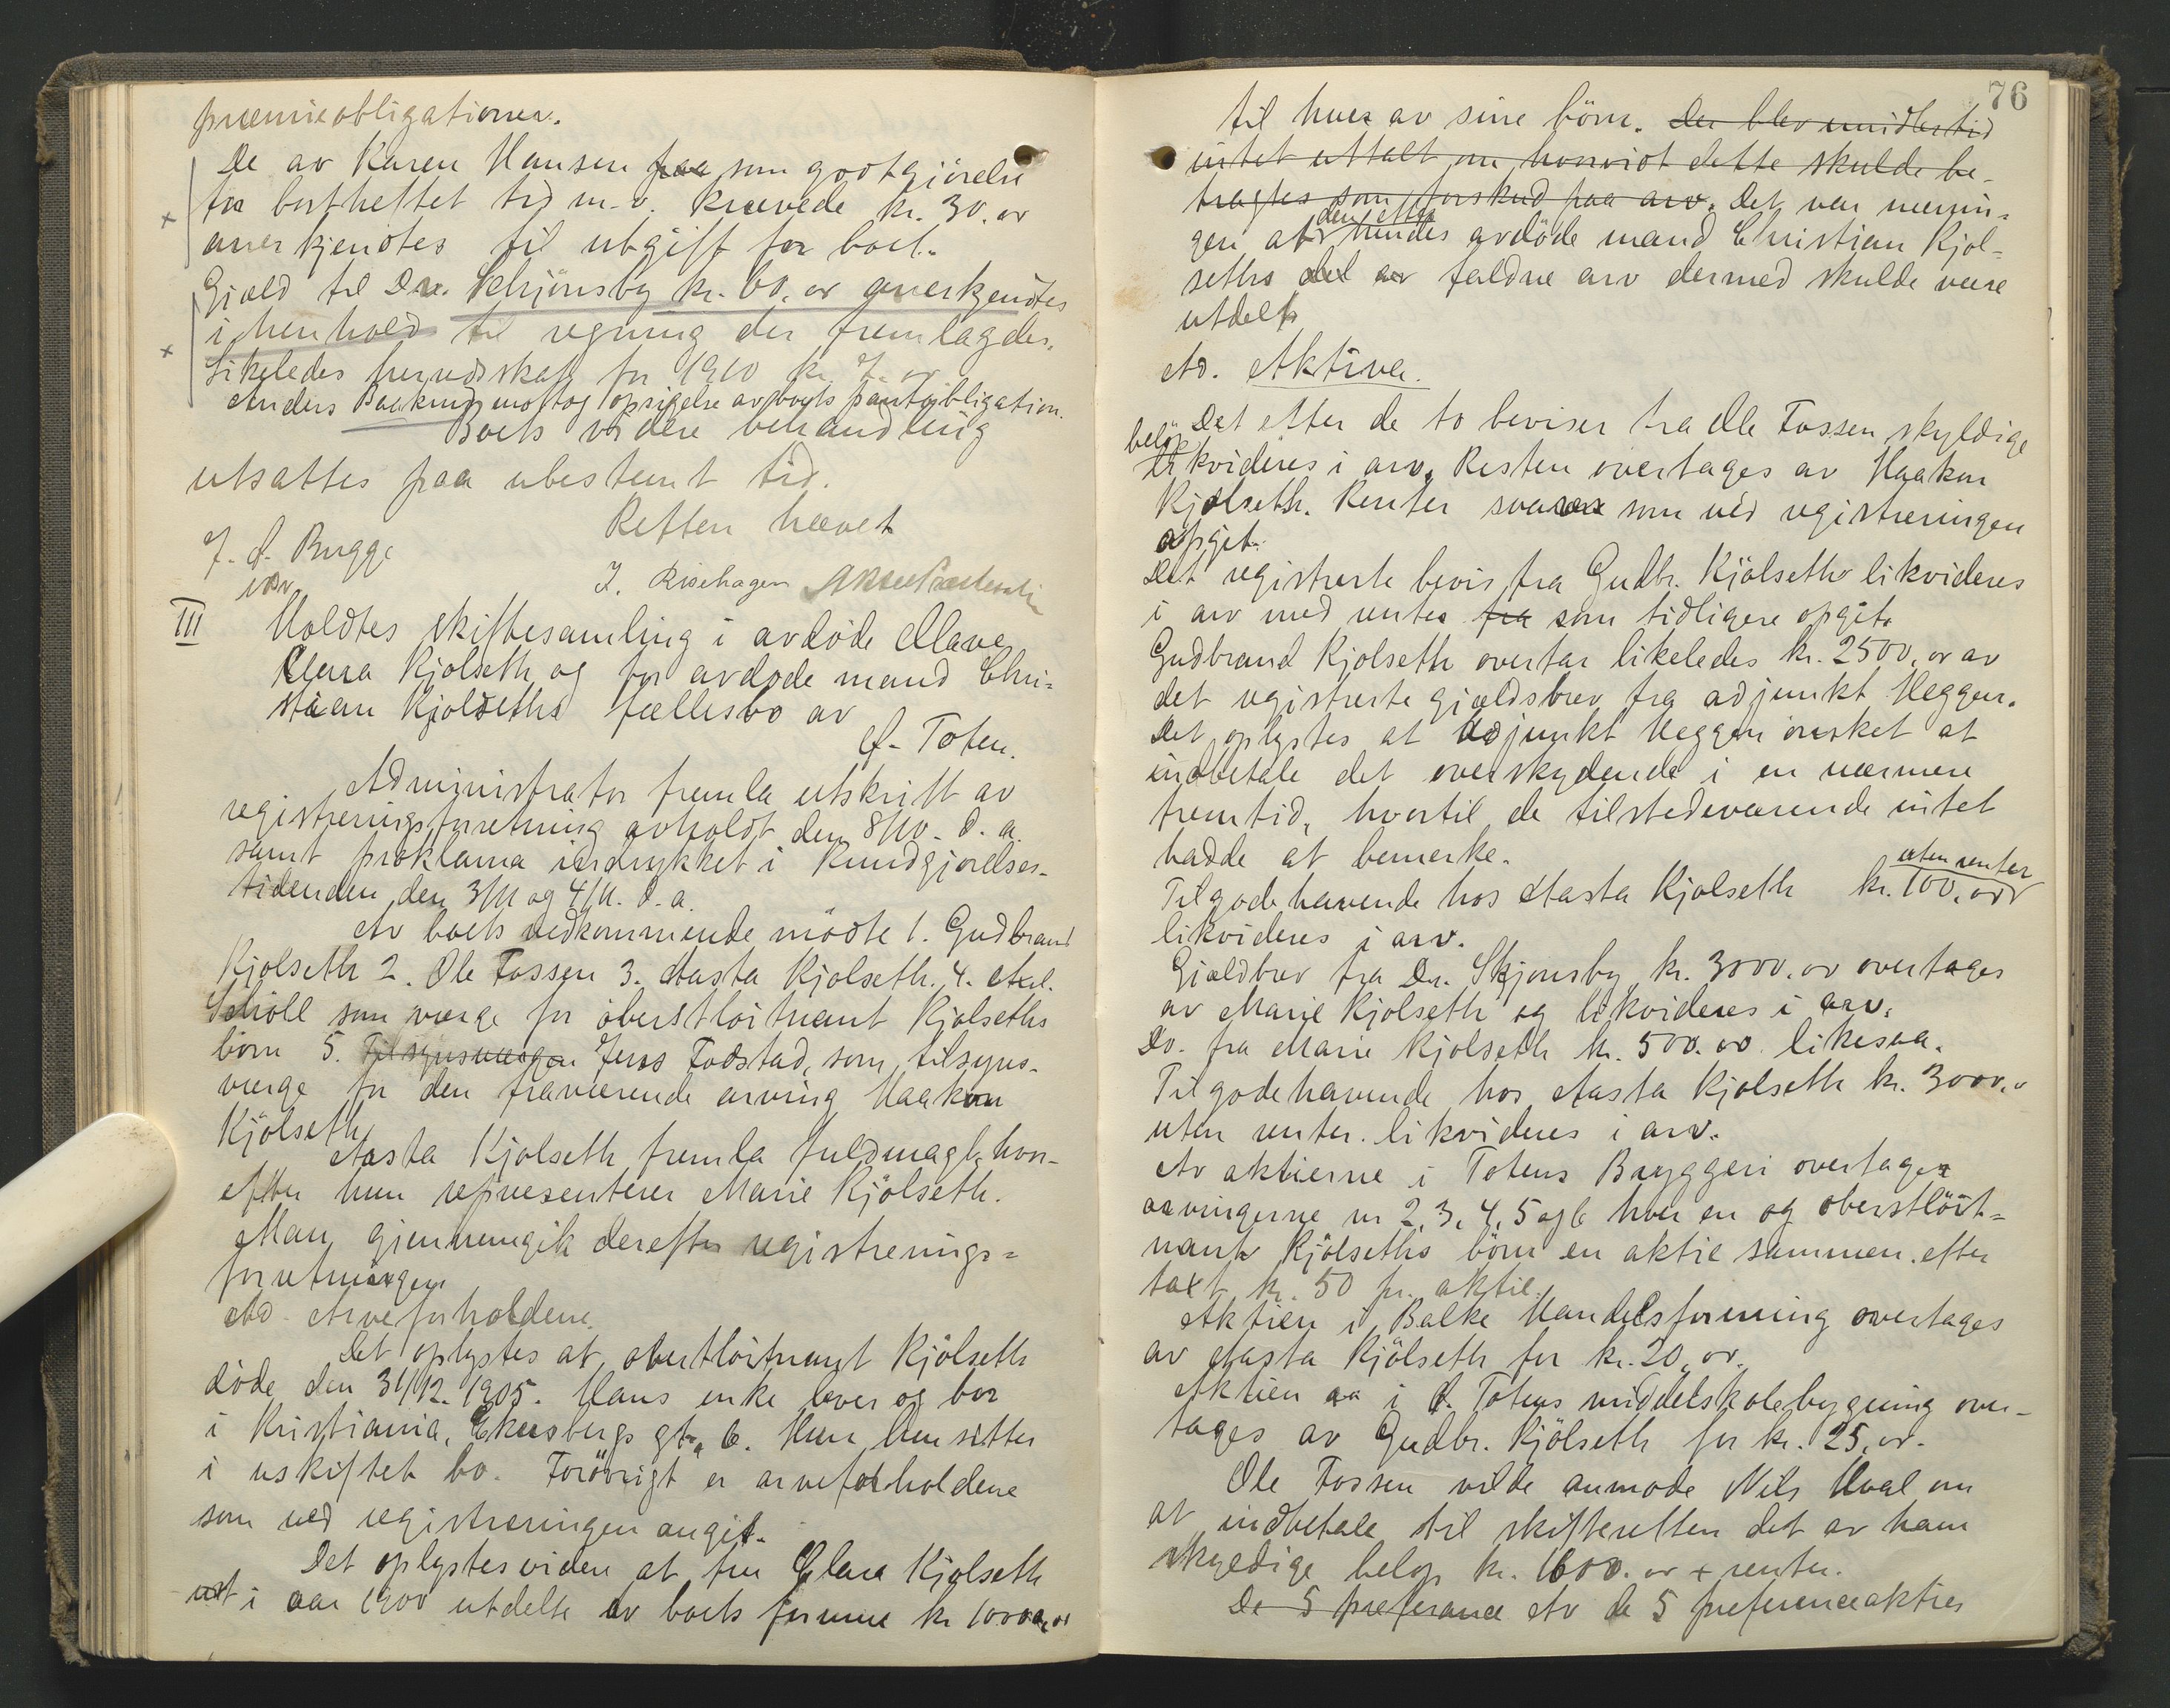 præmieobligationer.
De av Karen Hansen paa som godtgjörelse
for bortheftet tid m.v. krævede kr. 30.oo
anerkjendtes til utgift for boet.
Gjæld til Dr. Schjönsby kr. 60.oo anerkjendtes
i henhold til regning der fremlagdes.
Likeledes herredsskat for 1910 kr. 7.oo
Anders Bækmoj mottog opsigelse av boets pantobligation.
Boets videre behandling
utsattes paa ubestemt tid.
Retten hævet
J. A. Bugge
J. Risehagen
III Holdtes skiftesamling i avdöde
Clara Kjolseth og for avdöde mand Chri-
stian Kjolseths fællesbo av
Ø. Toten.
Administrator fremla utskrift av
registreringsforretning avholdt den 8/10. d.a.
samt proklama indrykket i Kundgjörelses-
tidenden den 3/11 og 4/11. d.a.
Av boets vedkommende mödte 1. Gudbrand
Kjolseth 2. Ole Fossen 3. Aasta Kjolseth. 4. Axel.
Schiöll som værge for oberstlöitnant Kjolseths
börn 5. Tilsynsværgen Jens Fodstad, som tilsyns-
værge for den fraværende arving Haakon
Kjölseth
Aasta Kjolseth fremla fuldmagt hvor-
efter hun representerer Marie Kjölseth.
Man gjennemgik derefter registrerings=
forretningen
Ad. Arveforholdene.
Det oplystes at oberstlöitnant Kjölseth
döde den 31/12. 1905. Hans enke lever og bor
i Kristiania, Ekersbergs gt. 6. Hun hensitter
i uskiftet bo. Forövrigt er arveforholdene
som ved registreringen angit.
Det oplystes viden at fru Clara Kjolseth
i aar 1900 utdelte av boets formue kr 10000.oo
76
til hver av sine börn. Der blev imidlertid
intet uttalt om hvorvidt dette skulde be-
tragtes som forskud paa arv. Det var menin=
den efter
gen at hendes avdöde mand Christian Kjol=
seths del av faldne arv dermed skulde være
utdelt
Ad. Aktiva.
Det efter de to beviser fra Ole Fossen skyldige
belöp
likvideres i arv. Resten overtages av Haakon
Kjolseth. Renter svares som ved registreringen
opgit.
Det registrerte bevis fra Gudbr. Kjölseth likvideres
i arv med renter fra som tidligere opgit.
Gudbrand Kjolseth overtar likeledes kr. 2500.oo av
det registrerte gjældsbrev fra adjunkt Heggen.
Det oplystes at Adjunkt Heggen önsket at
indbetale det overskydende i en nærmere
fremtid, hvortil de tilstedeværende intet
hadde at bemerke.
uten renter
Tilgodehavende hos Aasta Kjolseth kr. 100.oo
likvideres i arv.
Gjældbrev fra Dr. Skjonsby kr. 3000.oo overtages
av Marie Kjölseth og likvideres i arv.
Do. fra Marie Kjolseth kr. 500.oo likesaa.
Tilgodehavende hos Aasta Kjolseth kr. 3000.oo
uten renter. likvideres i arv.
Av aktierne i Totens Bryggeri overtager
arvingerne nr 2, 3, 4, 5 og 6 hver en og oberstlöit=
nant Kjölseths börn en aktie sammen. efter
taxt kr. 50 pr. aktie.
Aktien i Balke Handelsforening overtages
av Aasta Kjölseth for kr. 20.oo.
Aktien i Ø. Totens middelskolebygning over-
tages av Gudbr. Kjölseth for kr. 25.oo.
Ole Fossen vilde anmode Nils Hval om
at indbetale til skifteretten det av ham
skyldige belöp kr. 1600.oo + renter.
De 5 preferance Av de 5 preferenceaktier